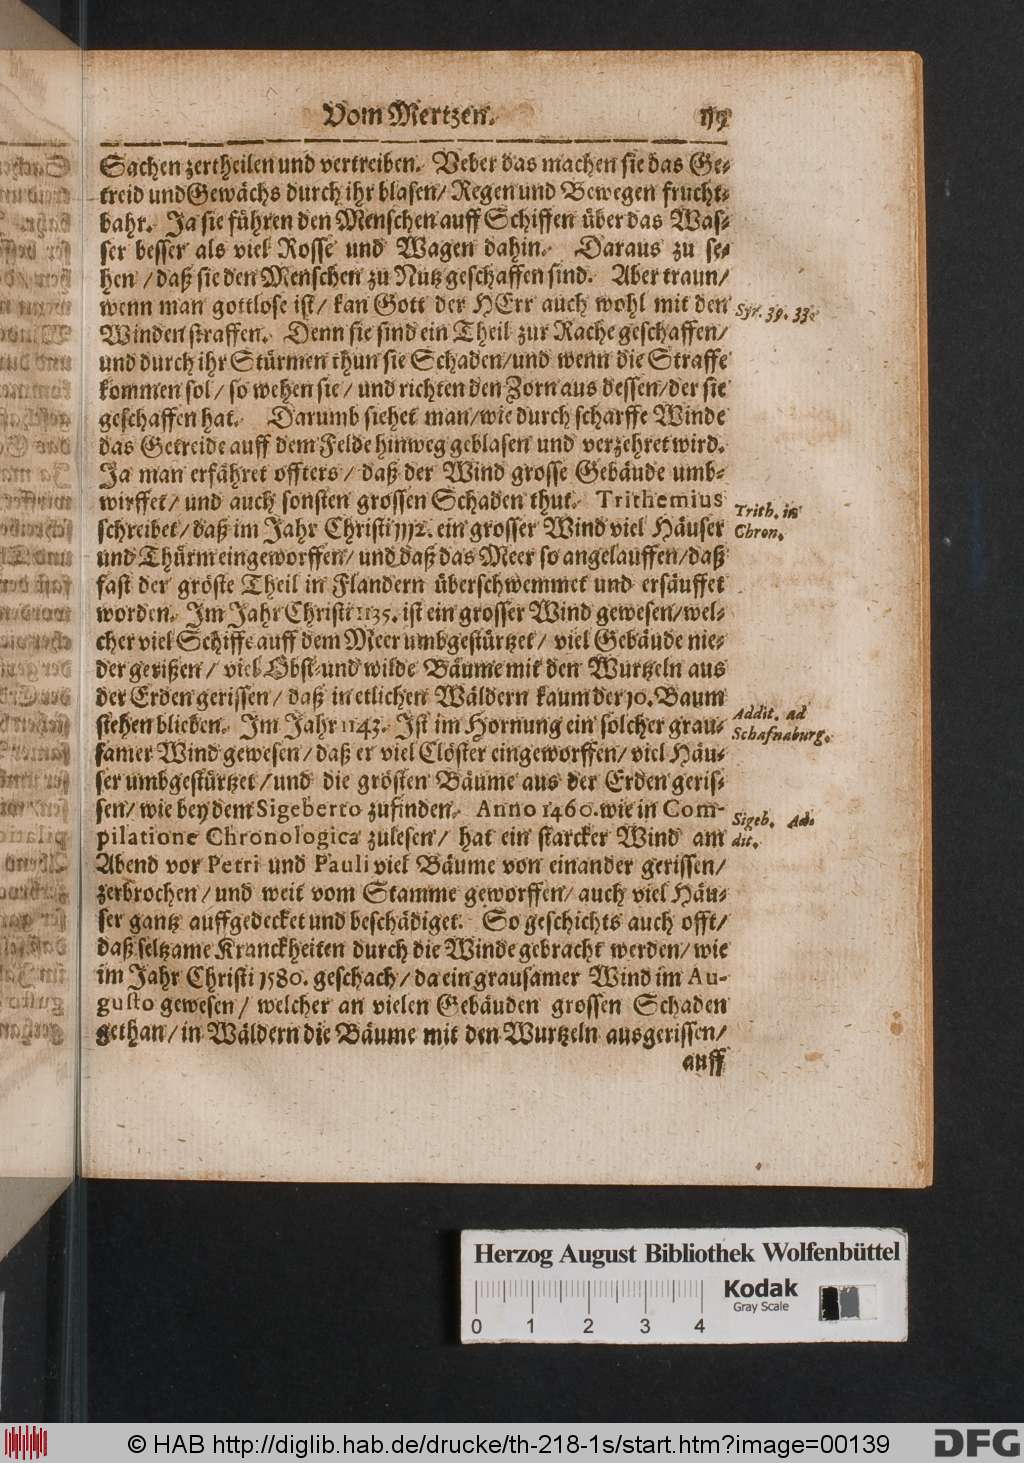 Vom Mertzen.
Sachen zertheilen und vertreiben. Veber das machen sie das Ge-
treid und Gewächs durch ihr blasen/ Regen und Bewegen frucht-
bahr. Ja sie führen den Menschen auff Schiffen über das Was-
ser besser als viel Rosse und Wagen dahin. Daraus zu se-
hen / daß sie den Menschen zu Nutz geschaffen sind. Aber traun/
wenn man gottlose ist/ kan Gott der HErr auch wohl mit den
Syr. 39. 33.
Winden straffen. Denn sie sind ein Theil zur Rache geschaffen/
und durch ihr Stürmen thun sie Schaden/und wenn die Straffe
kommen sol/ so wehen sie/ und richten den Zorn aus dessen/der sie
geschaffen hat. Darumb siehet man/wie durch scharffe Winde
das Getreide auff dem Felde hinweg geblasen und verzehret wird.
Ja man erfähret offters/ daß der Wind grosse Gebäude umb-
wirffet/ und auch sonsten grossen Schaden thut. Trithemius
Trith. in
schreibet/ daß im Jahr Christi 1112. ein grosser Wind viel Häuser
Chron.
und Thürm eingeworffen/ und daß das Meer so angelauffen/daß
fast der gröste Theil in Flandern überschwemmet und ersäuffet
worden. Im Jahr Christi 1135. ist ein grosser Wind gewesen/wel-
cher viel Schiffe auff dem Meer umbgestürtzet/ viel Gebäude nie-
der gerißen/ viel Obst-und wilde Bäume mit den Wurtzeln aus
der Erden gerissen/ daß in etlichen Wäldern kaum der 10. Baum
stehen blieben. Im Jahr 1143. Ist im Hornung ein solcher grau-
Addit. ad
Schafnaburg.
samer Wind gewesen/ daß er viel Clöster eingeworffen/ viel Häu-
ser umbgestürtzet/und die grösten Bäume aus der Erden geris-
sen/ wie bey dem Sigeberto zufinden. Anno 1460. wie in Com-
Sigeb. Ad-
pilatione Chronologica zulesen/ hat ein starcker Wind am
dit.
Abend vor Petri und Pauli viel Bäume von einander gerissen/
zerbrochen/ und weit vom Stamme geworffen/ auch viel Häu-
ser gantz auffgedecket und beschädiget. So geschichts auch offt/
daß seltzame Kranckheiten durch die Winde gebracht werden/ wie
im Jahr Christi 1580. geschach/ da ein grausamer Wind im Au-
gusto gewesen/ welcher an vielen Gebäuden grossen Schaden
gethan/ in Wäldern die Bäume mit den Wurtzeln ausgerissen/
auff
Herzog August Bibliothek Wolfenbüttel
Kodak
Gray Scale
0 1 2 3 4
© HAB http://diglib.hab.de/drucke/th-218-1s/start.htm?image=00139
DFG